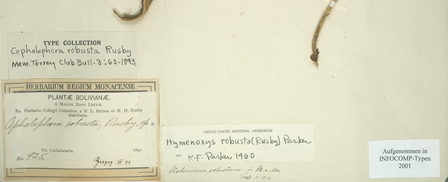 TYPE COLLECTION
Cephalophora robusta Rusby
Mem. Torrey Club Bull. 3:63. 1893
HERBARIUM REGIUM MONACENSE.
PLANTÆ BOLIVIANÆ
A MIGUEL BANG LECTÆ.
Ex. Herbario Collegii Columbiæ, a N. L. Britton et H. H. Rusby
distributæ.
Cephalophora robusta, Rusby,
Vic. Cochabamba, 1891.
No.
UNITED STATES NATIONAL HERBARIUM
Hymenoxys robusta (Rusby) Parker
K.F. Parker 1960
Helenium robustum
Aufgenommen in
INFOCOMP-Typen
2001